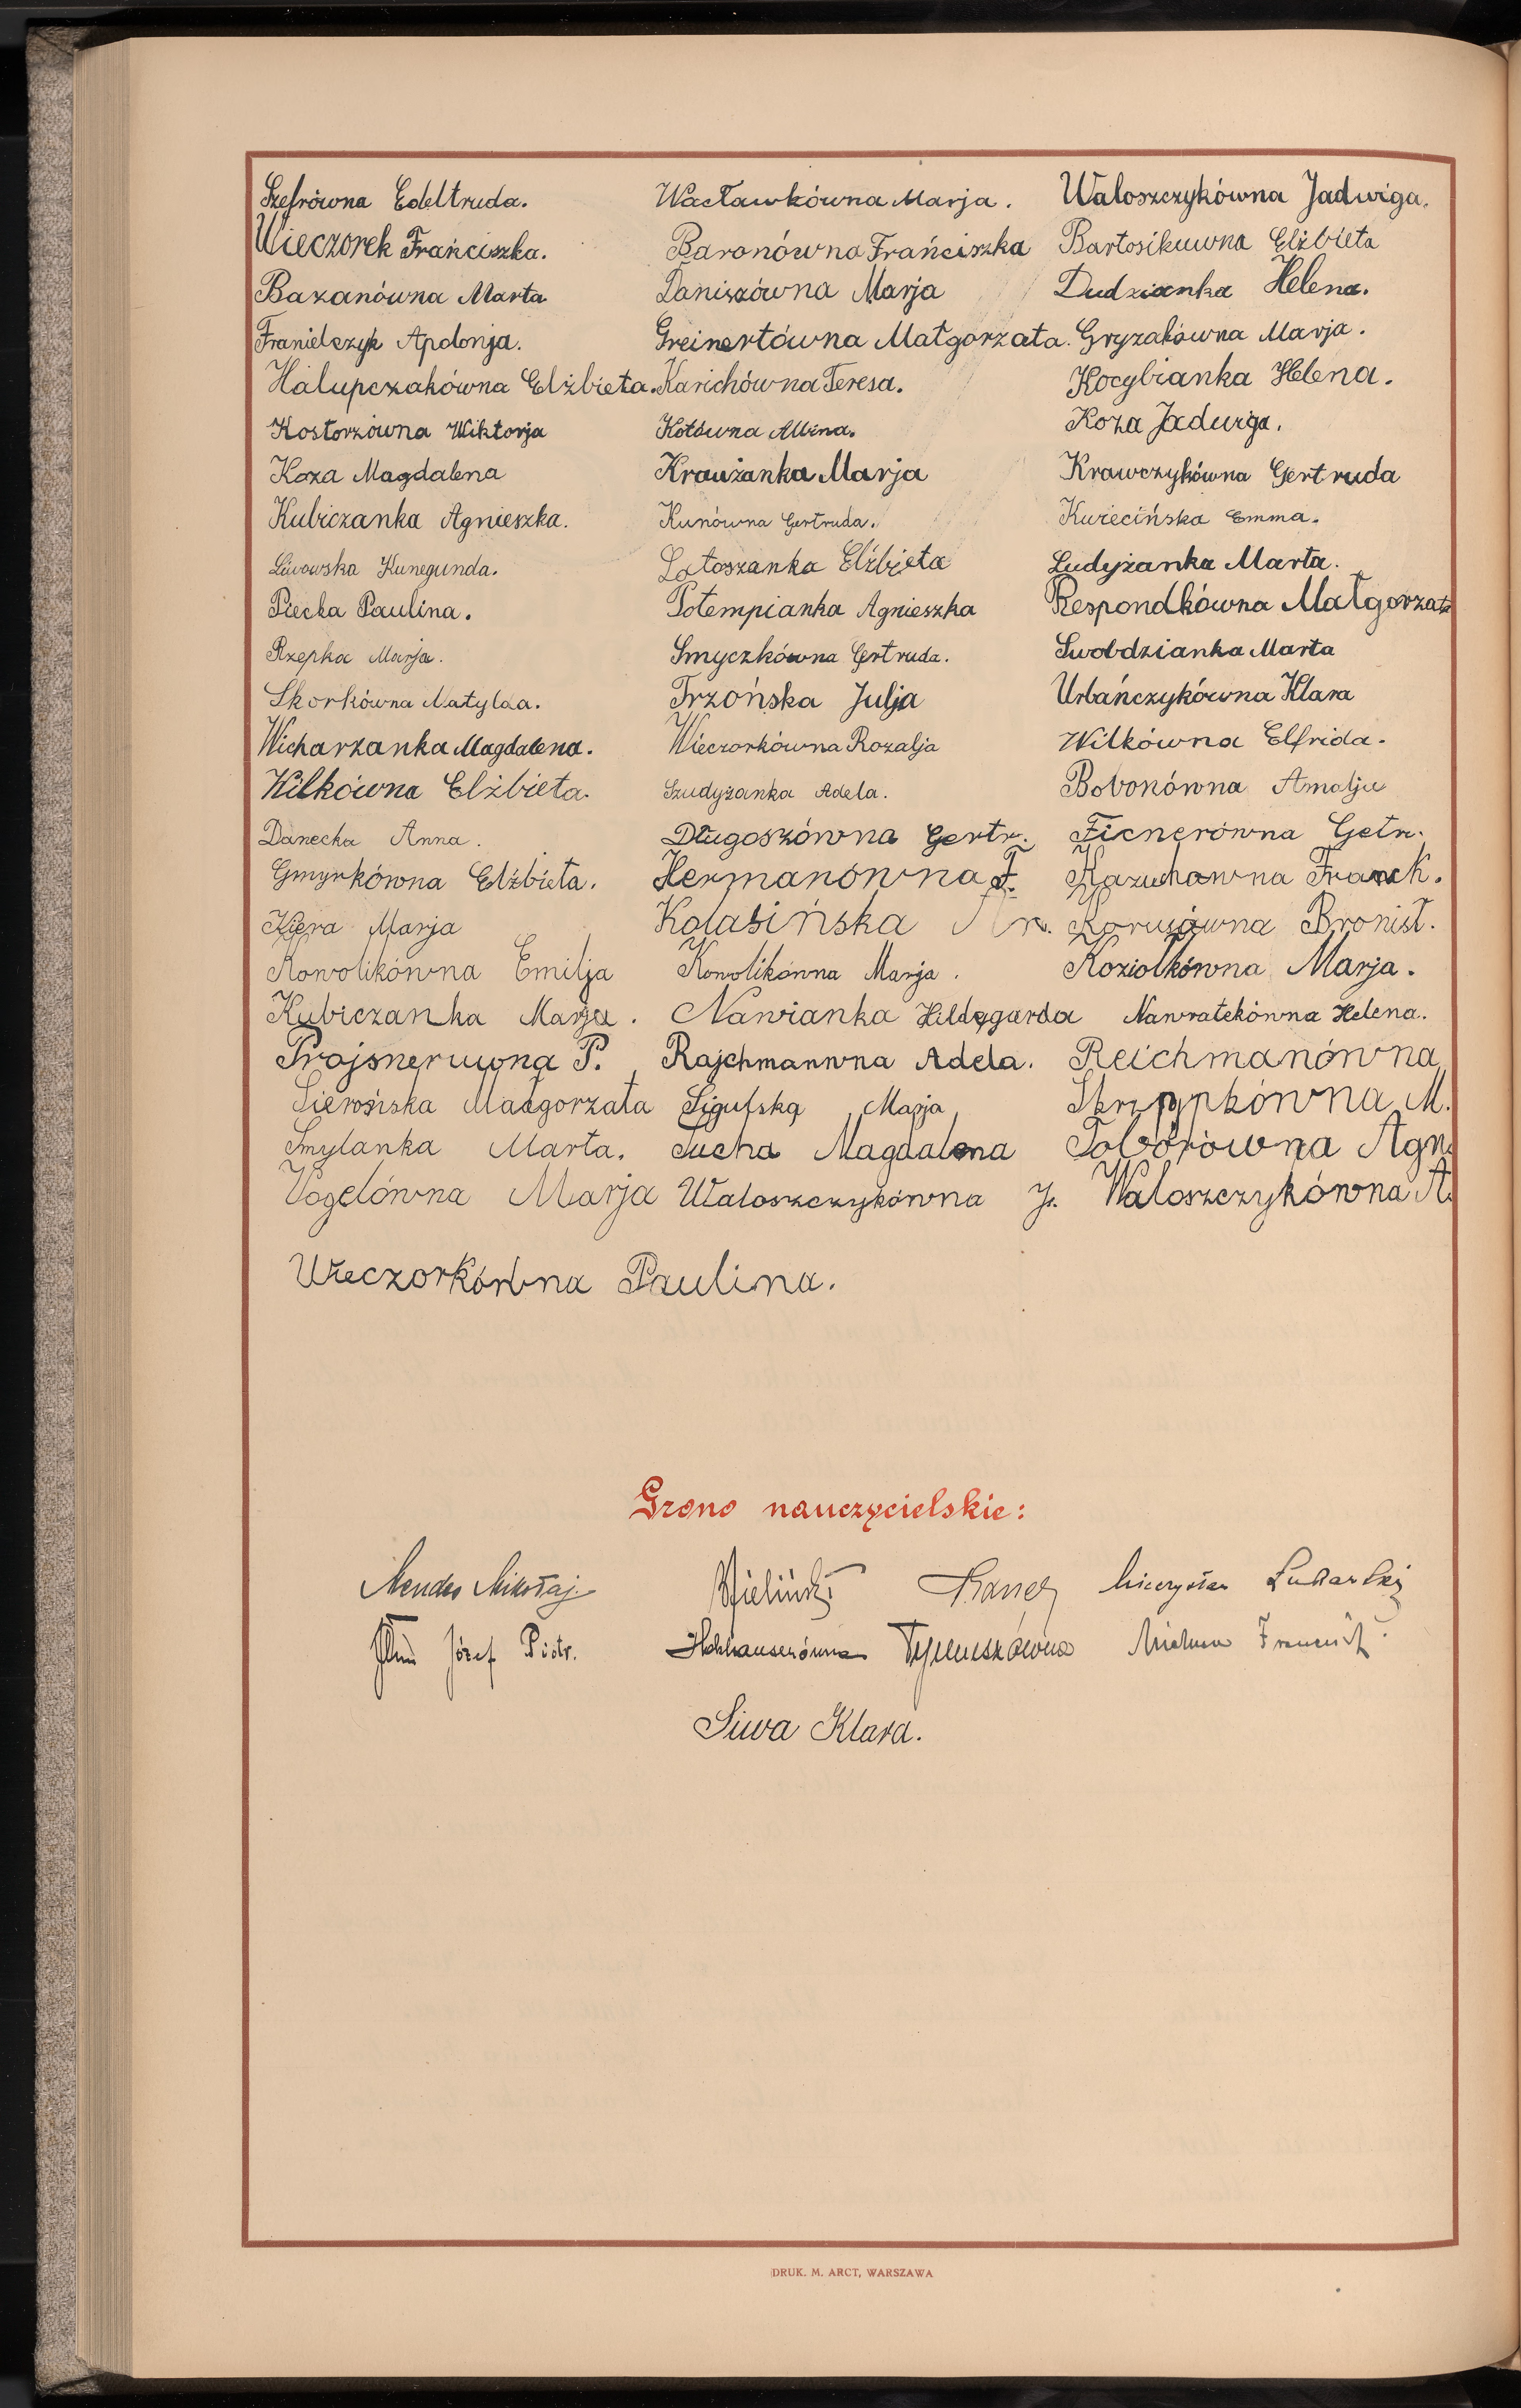 Szefrówna Edeltruda. Wacławkówna Marja. Waloszczykówna Jadwiga.
Wieczorek Frańciszka. Baronówna Frańciszka Bartosikuwna Elżbieta
Bazanówna Marta Daniszówna Marja Dudzianka Helena.
Franielczyk Apolonja. Greinertówna Małgorzata. Gryzakówna Marja.
Halupczakówna Elżbieta. Karichówna Teresa. Kocybianka Helena.
Kostorzówna Wiktorja Kotówna Albina. Koza Jadwiga.
Koza Magdalena Krauzanka Marja Krawczykówna Gertruda
Kubiczanka Agnieszka. Kunówna Gertruda. Kwiecińska Emma.
Liwowska Kunegunda. Latoszanka Elżbieta Ludyżanka Marta.
Piecka Paulina. Potempianka Agnieszka Respondkówna Małgorzata
Rzepka Marja. Smyczkówna Gertruda. Swobdzianka Marta
Skorkówna Matylda. Trzońska Julja Urbańczykówna Klara
Wicharzanka Magdalena. Wieczorkówna Rozalja Wilkówna Elfrida.
Wilkówna Elżbieta. Szudyżanka Adela. Bobonówna Amalja
Danecka Anna. Długoszówna Gertr. Ficnerówna Getr.
Gmyrkówna Elżbieta. Hermanówna F. Kazuchowna Franck.
Kiera Marja Kolasińska Korusówna Bronisł.
Kowolikówna Emilja Kowolikówna Marja. Koziołkówna Marja.
Kubiczanka Marja. Nawianka Hildegarda Nawratekówna Helena.
Prajsneruwna P. Rajchmanwna Adela. Reichmanówna
Sierońska Małgorzata Sigulska Marja Skrzypkówna M.
Smylanka Marta. Sucha Magdalena Toborówna Agn.
Vogelówna Marja Waloszczykówna J. Waloszczykówna A.
Wieczorkówna Paulina.
Grono nauczycielskie:
Mendes Mikołaj Bieliński Mieczysław
Józef Piotr. Hochhauserówna Tymuszówna
Siwa Klara.
DRUK. M. ARCT, WARSZAWA